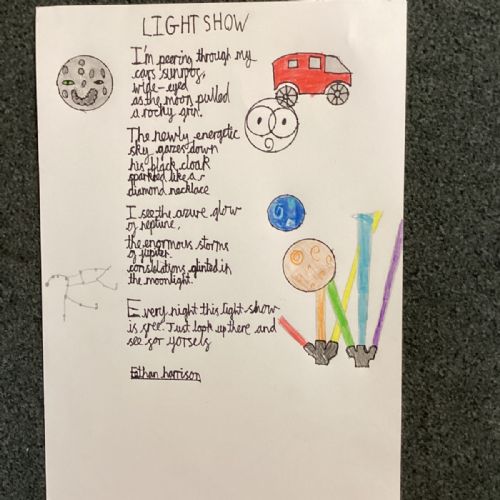 LIGHTSHOW
I'm peering through my
cars sunroof,
wide-eyed
as the moon pulled
a rocky grin.
The newly energetic
sky gazes down
his black cloak
sparkled like a
diamond necklace
I see the azure glow
of neptune,
the enormous storms
of jupiter.
constelations glinted in
the moonlight.
Every night this light show
is free. Just look up there and
see for yorsels
Ethan harrison